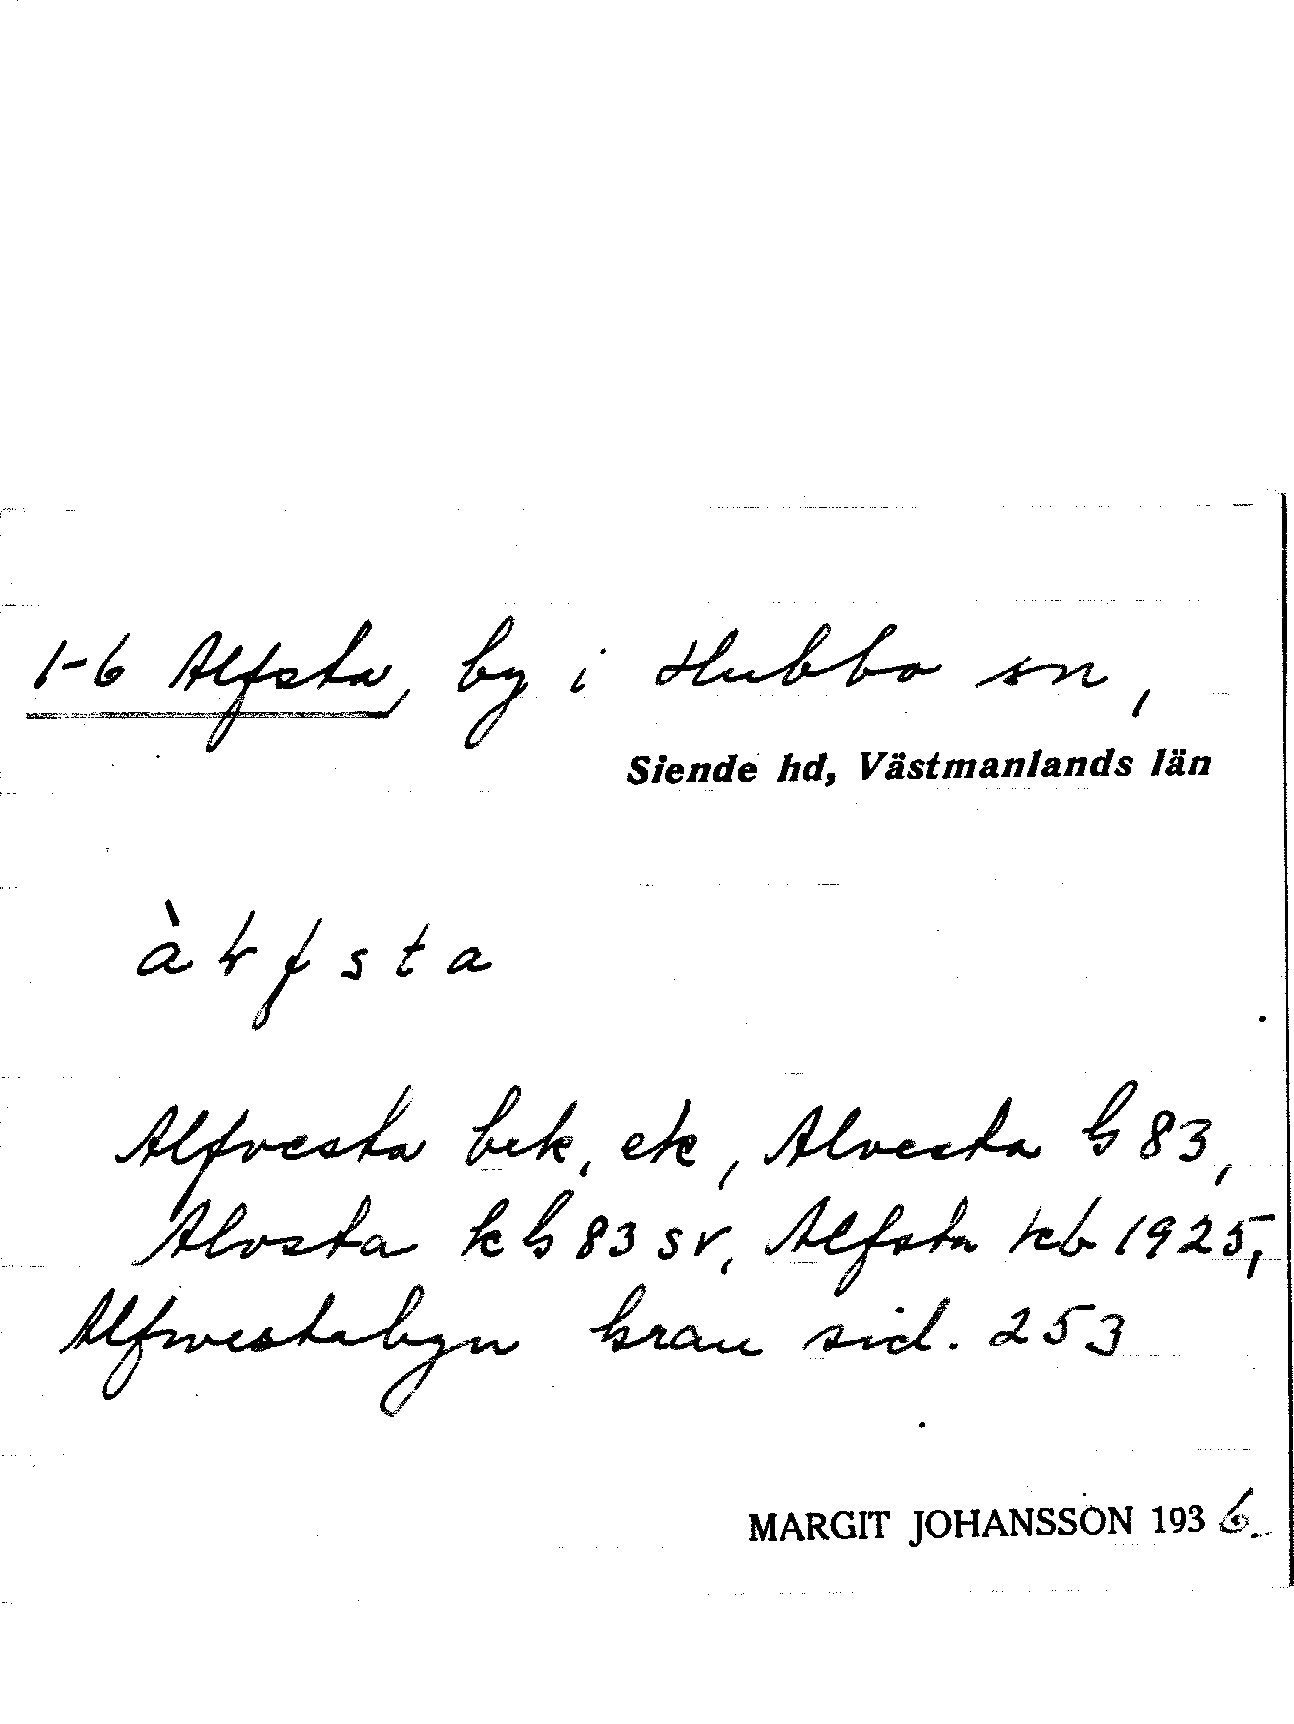 1-6 Alfsta, by i Hubbo sn,
Siende hd, Västmanlands län
à f s t a
Alfvesta bek, ek, Alvesta G 83,
Alvsta k G 83 sv, Alfsta kb 1925,
Alfwestabyn Grau sid. 253
MARGIT JOHANSSON 1936.